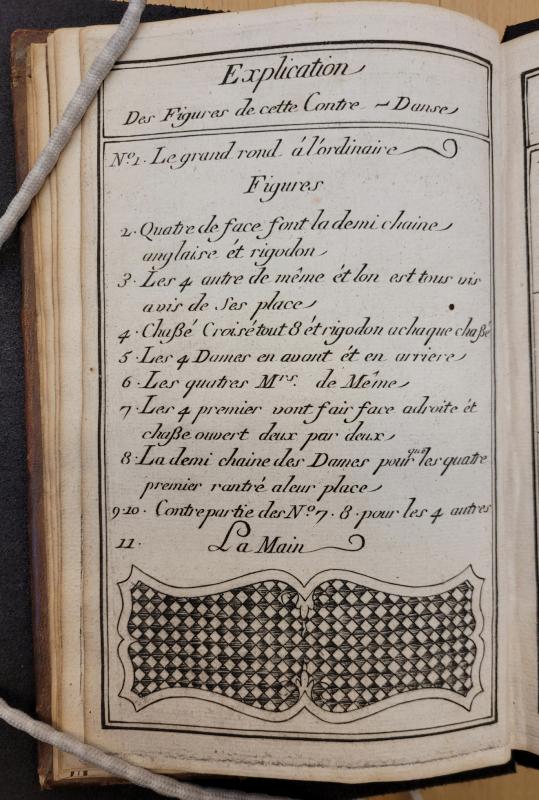 Explication
Des Figures de cette Contre - Danse
No. 1. Le grand rond á l'ordinaire
Figures
2. Quatre de face font la demi chaine
anglaise ét rigodon
3. Les 4 autre de même ét lon est tous vis
avis de ses place
4. Chaßé Croisé tout 8 ét rigodon a chaque chaßé
5. Les 4 Dames en avant ét en arriere
6. Les quatres Mrs. de Même
7. Les 4 premier vont fair face adroite ét
chaße ouvert deux par deux
8. La demi chaine des Dames pour que les quatre
premier rantré a leur place
9.10. Contrepartie des No. 7. 8. pour les 4 autres
11. La Main